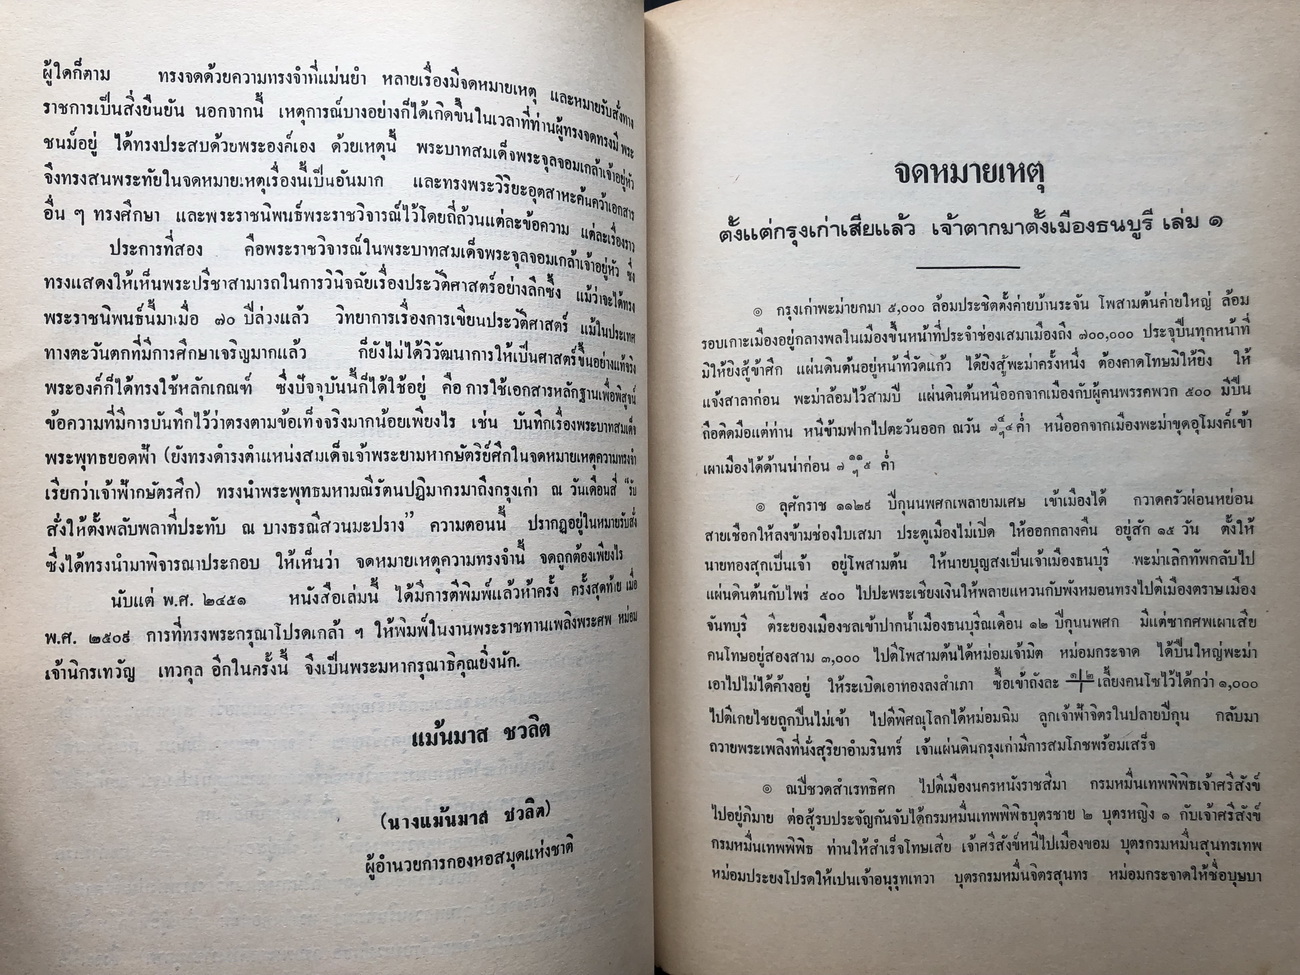 ผู้ใดก็ตาม ทรงจดด้วยความทรงจำที่แม่นยำ หลายเรื่องมีจดหมายเหตุ และหมายรับสั่งทาง
ราชการเป็นสิ่งยืนยัน นอกจากนี้ เหตุการณ์บางอย่างก็ได้เกิดขึ้นในเวลาที่ท่านผู้ทรงจดทรงมีพระ
ชนม์อยู่ ได้ทรงประสบด้วยพระองค์เอง ด้วยเหตุนี้ พระบาทสมเด็จพระจุลจอมเกล้าเจ้าอยู่หัว
จึงทรงสนพระทัยในจดหมายเหตุเรื่องนี้เป็นอันมาก และทรงพระวิริยะอุตสาหะค้นคว้าเอกสาร
อื่น ๆ ทรงศึกษา และพระราชนิพนธ์พระราชวิจารณ์ไว้โดยถี่ถ้วนแต่ละข้อความ แต่ละเรื่องราว
ประการที่สอง คือพระราชวิจารณ์ในพระบาทสมเด็จพระจุลจอมเกล้าเจ้าอยู่หัว ซึ่ง
ทรงแสดงให้เห็นพระปรีชาสามารถในการวินิจฉัยเรื่องประวัติศาสตร์อย่างลึกซึ้ง แม้ว่าจะได้ทรง
พระราชนิพนธ์นี้มาเมื่อ ๗๐ ปีล่วงแล้ว วิทยาการเรื่องการเขียนประวัติศาสตร์ แม้ในประเทศ
ทางตะวันตกที่มีการศึกษาเจริญมากแล้ว ก็ยังไม่ได้วิวัฒนาการให้เป็นศาสตร์ขึ้นอย่างแท้จริง
พระองค์ก็ได้ทรงใช้หลักเกณฑ์ ซึ่งปัจจุบันนี้ก็ได้ใช้อยู่ คือ การใช้เอกสารหลักฐานเพื่อพิสูจน์
ข้อความที่มีการบันทึกไว้ว่าตรงตามข้อเท็จจริงมากน้อยเพียงไร เช่น บันทึกเรื่องพระบาทสมเด็จ
พระพุทธยอดฟ้า (ยังทรงดำรงตำแหน่งสมเด็จเจ้าพระยามหากษัตริย์ศึกในจดหมายเหตุความทรงจำ
เรียกว่าเจ้าฟ้ากษัตรศึก) ทรงนำพระพุทธมหามณีรัตนปฏิมากรมาถึงกรุงเก่า ณ วันเดือนสี่ "รับ
สั่งให้ตั้งพลับพลาที่ประทับ ณ บางธรณีสวนมะปราง" ความตอนนี้ ปรากฏอยู่ในหมายรับสั่ง
ซึ่งได้ทรงนำมาพิจารณาประกอบ ให้เห็นว่า จดหมายเหตุความทรงจำนี้ จดถูกต้องเพียงไร
นับแต่ พ.ศ. ๒๔๕๑ หนังสือเล่มนี้ ได้มีการตีพิมพ์แล้วห้าครั้ง ครั้งสุดท้าย เมื่อ
พ.ศ. ๒๕๐๙ การที่ทรงพระกรุณาโปรดเกล้า ฯ ให้พิมพ์ในงานพระราชทานเพลิงพระศพ หม่อม
เจ้านิกรเทวัญ เทวกุล อีกในครั้งนี้ จึงเป็นพระมหากรุณาธิคุณยิ่งนัก.
แม้นมาส ชวลิต
(นางแม้นมาส ชวลิต)
ผู้อำนวยการกองหอสมุดแห่งชาติ
จดหมายเหตุ
ตั้งแต่กรุงเก่าเสียแล้ว เจ้าตากมาตั้งเมืองธนบูรี เล่ม ๑
๏ กรุงเก่าพะม่ายกมา ๕,๐๐๐ ล้อมประชิตตั้งค่ายบ้านระจัน โพสามต้นค่ายใหญ่ ล้อม
รอบเกาะเมืองอยู่กลางพลในเมืองขึ้นหน้าที่ประจำช่องเสมาเมืองถึง ๗๐๐,๐๐๐ ประจุปืนทุกหน้าที่
มิให้ยิงสู้ข้าศึก แผ่นดินต้นอยู่หน้าที่วัดแก้ว ได้ยิงสู้พะม่าครั้งหนึ่ง ต้องคาดโทษมิให้ยิง ให้
แจ้งสาลาก่อน พะม่าล้อมไว้สามปี แผ่นดินต้นหนีออกจากเมืองกับผู้คนพรรคพวก ๕๐๐ มีปืน
ถือติดมือแต่ท่าน หนีข้ามฟากไปตะวันออก ณวัน ค่ำ หนีออกจากเมืองพะม่าขุดอุโมงค์เข้า
เผาเมืองได้ด้านน่าก่อน ค่ำ
๏ ลุศักราช ๑๑๒๙ ปีกุนนพศกเพลายามเศษ เข้าเมืองได้ กวาดครัวผ่อนหย่อน
สายเชือกให้ลงข้ามช่องใบเสมา ประตูเมืองไม่เปิด ให้ออกกลางคืน อยู่สัก ๑๕ วัน ตั้งให้
นายทองสุกเป็นเจ้า อยู่โพสามต้น ให้นายบุญสงเป็นเจ้าเมืองธนบุรี พะม่าเลิกทัพกลับไป
แผ่นดินต้นกับไพร่ ๕๐๐ ไปปะพระเชียงเงินให้พลายแหวนกับพังหมอนทรงไปตีเมืองตราษเมือง
จันทบุรี ตีระยองเมืองชลเข้าปากน้ำเมืองธนบุรีณเดือน ๑๒ ปีกุนนพศก มีแต่ซากศพเผาเสีย
คนโทษอยู่สองสาม ๓,๐๐๐ ไปตีโพสามต้นได้หม่อมเจ้ามิต หม่อมกระจาด ได้ปืนใหญ่พะม่า
เอาไปไม่ได้ค้างอยู่ ให้ระเบิดเอาทองลงสำเภา ซื้อเข้าถังละ เลี้ยงคนโซไว้ได้กว่า ๑,๐๐๐
ไปตีเกยไชยถูกปืนไม่เข้า ไปตีพิศณุโลกได้หม่อมฉิม ลูกเจ้าฟ้าจิตรในปลายปีกุน กลับมา
ถวายพระเพลิงที่นั่งสุริยาอำมรินทร์ เจ้าแผ่นดินกรุงเก่ามีการสมโภชพร้อมเสร็จ
๏ ณปีชวดสำเรทธิศก ไปตีเมืองนครหนังราชสีมา กรมหมื่นเทพพิพิธเจ้าศรีสังข์
ไปอยู่ภิมาย ต่อสู้รบประจัญกันจับได้กรมหมื่นเทพพิพิธบุตรชาย ๒ บุตรหญิง ๑ กับเจ้าศรีสังข์
กรมหมื่นเทพพิพิธ ท่านให้สำเร็จโทษเสีย เจ้าศรีสังข์หนีไปเมืองขอม บุตรกรมหมื่นสุนทรเทพ
หม่อมประยงโปรดให้เปนเจ้าอนุรุทเทวา บุตรกรมหมื่นจิตรสุนทร หม่อมกระจาดให้ชื่อบุษบา